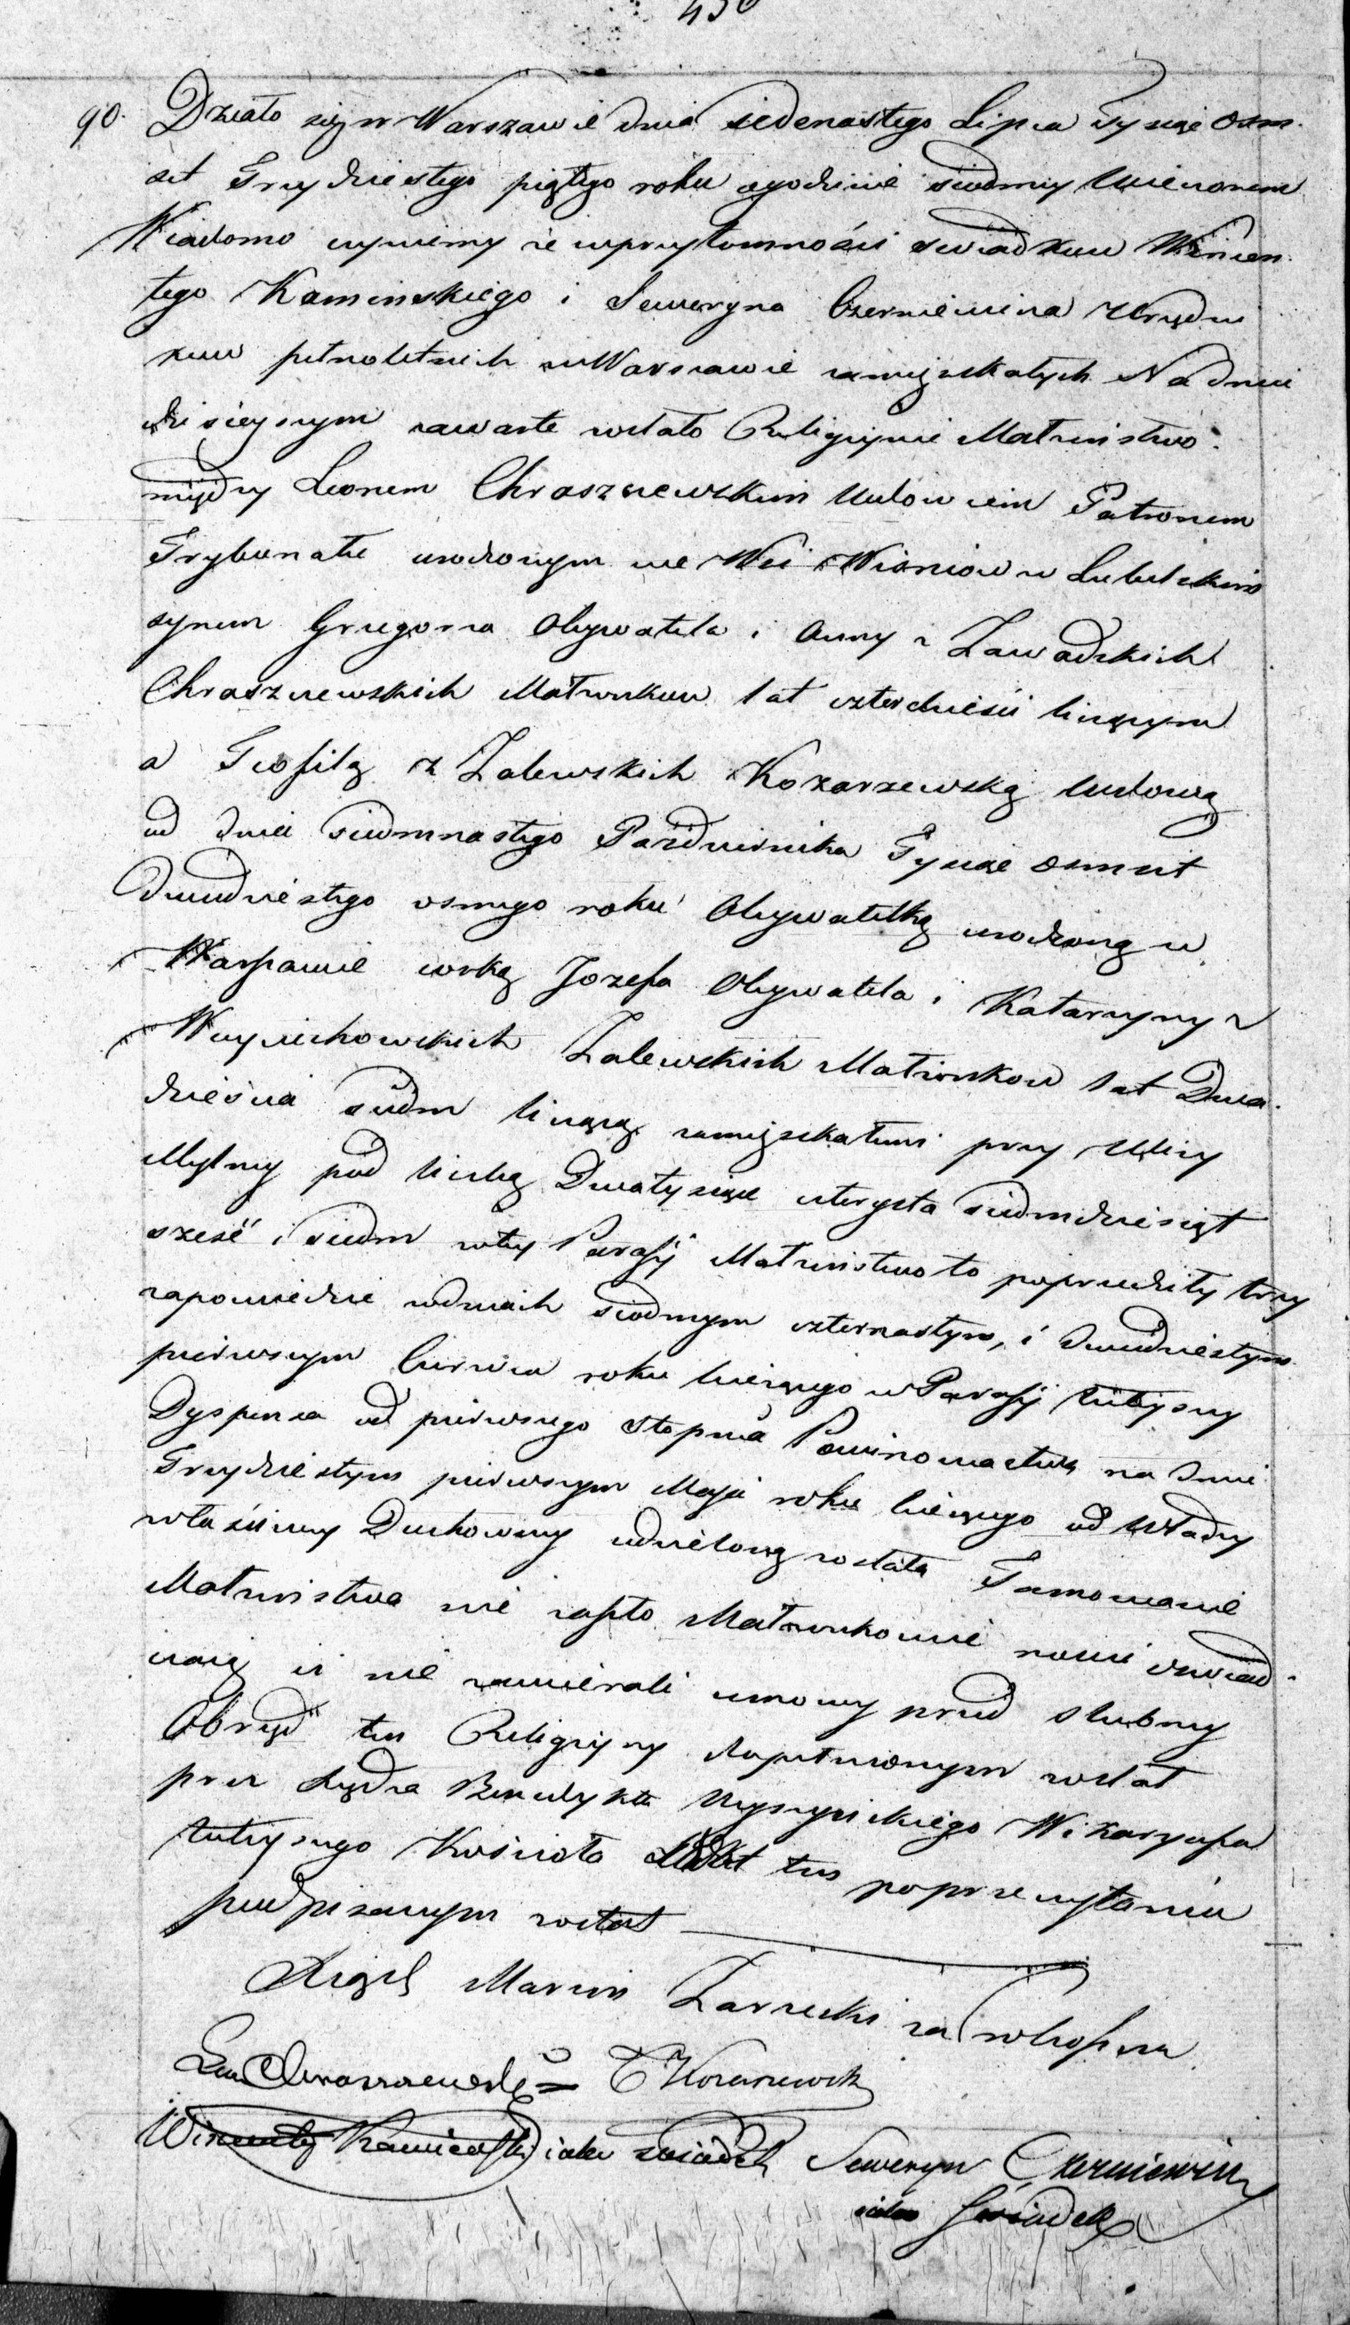 90. Działo się w Warszawie dnia siedenastego Lipca Tysiąc Osm-
set Trzydziestego piątego roku o godzinie siodmey Wieczorem
Wiadomo czyniemy że w przytomności swiadkow Wincen-
tego Kaminskiego i Seweryna Czerniewicza Urzędni
kow pełnoletnich w Warszawie zamięszkałych Na dniu
dzisieyszym zawarte zostało Religiynie Małżeństwo
między Leonem Chraszczewskim Wdowcem Patronem
Trybunału urodzonym we Wsi Wisniow w Lubelskim
synem Grzegorza Obywatela i Anny z Zawadzkich
Chraszczewskich Małżonkow lat czterdzieści liczącym
a Teofilą z Zalewskich Kozarzewską Wdową
od dnia siedmnastego Pazdziernika Tysiąc osmset
Dwudziestego osmego roku Obywatelką urodzoną w
Warszawie corką Jozefa Obywatela i Katarzyny z
Woyciechowskich Zalewskich Małżonkow lat Dwa-
dzieścia siedm liczącą zamięszkałemi przy Ulicy
Mylney pod liczbą Dwatysiące czterysta siedmdziesiąt
sześć i siedm w tey Parafij Małżeństwo to poprzedziły trzy
zapowiedzie w dniach siodmym czternastym, i dwudziestym
pierwszym Czerwca roku bieżącego w Parafij tuteyszey
Dyspensa od pierwszego stopnia Powinowactwa na dniu
Trzydziestym pierwszym Maja roku bieżącego od Władzy
właściwey Duchowney udzieloną została Tamowanie
Małżeństwa nie zaszło Małżonkowie nowi oswiad-
czaią iż nie zawierali umowy przed slubney
Obrząd ten Religiyny dopełnionym został
przez Xiędza Benedykta Wyszyńskiego Wikaryusza
tuteyszego Kościoła Akt ten po przeczytaniu
podpisanym został
Xiądz Marcin Zarzecki za Proboszcza
Leon Chraszczewski T Kozarzewska
Wincenty Kamieński iako swiadek Seweryn Czerniewicz
iako Swiadek